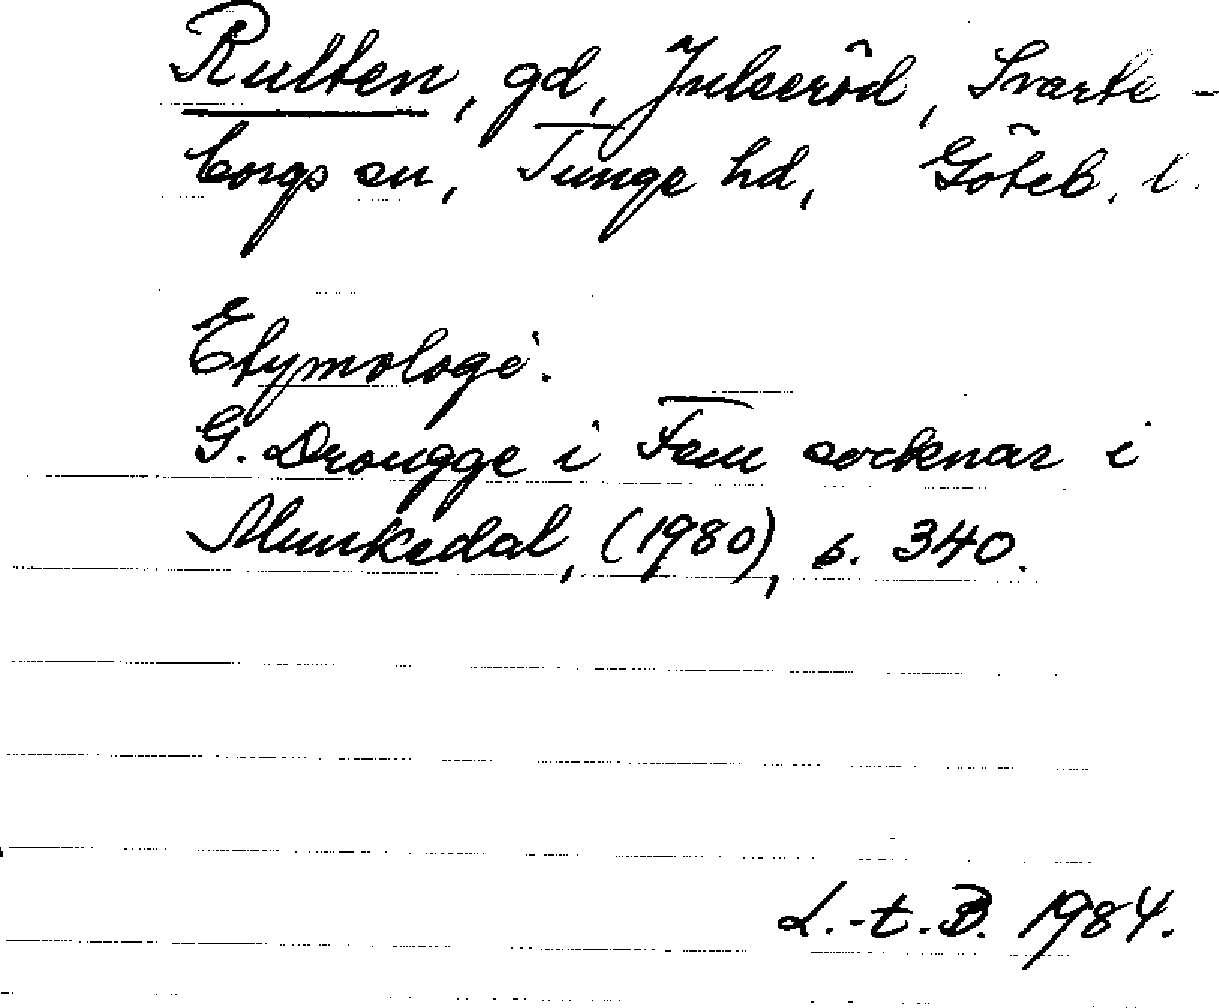 Rulten, gd, Julseröd, Svarte-
borgs sn, Tunge hd, Göteb. l.
Etymologi.
G. Drougge i Fem socknar i
Munkedal, (1980), s. 340.
L.-t. B. 1984.